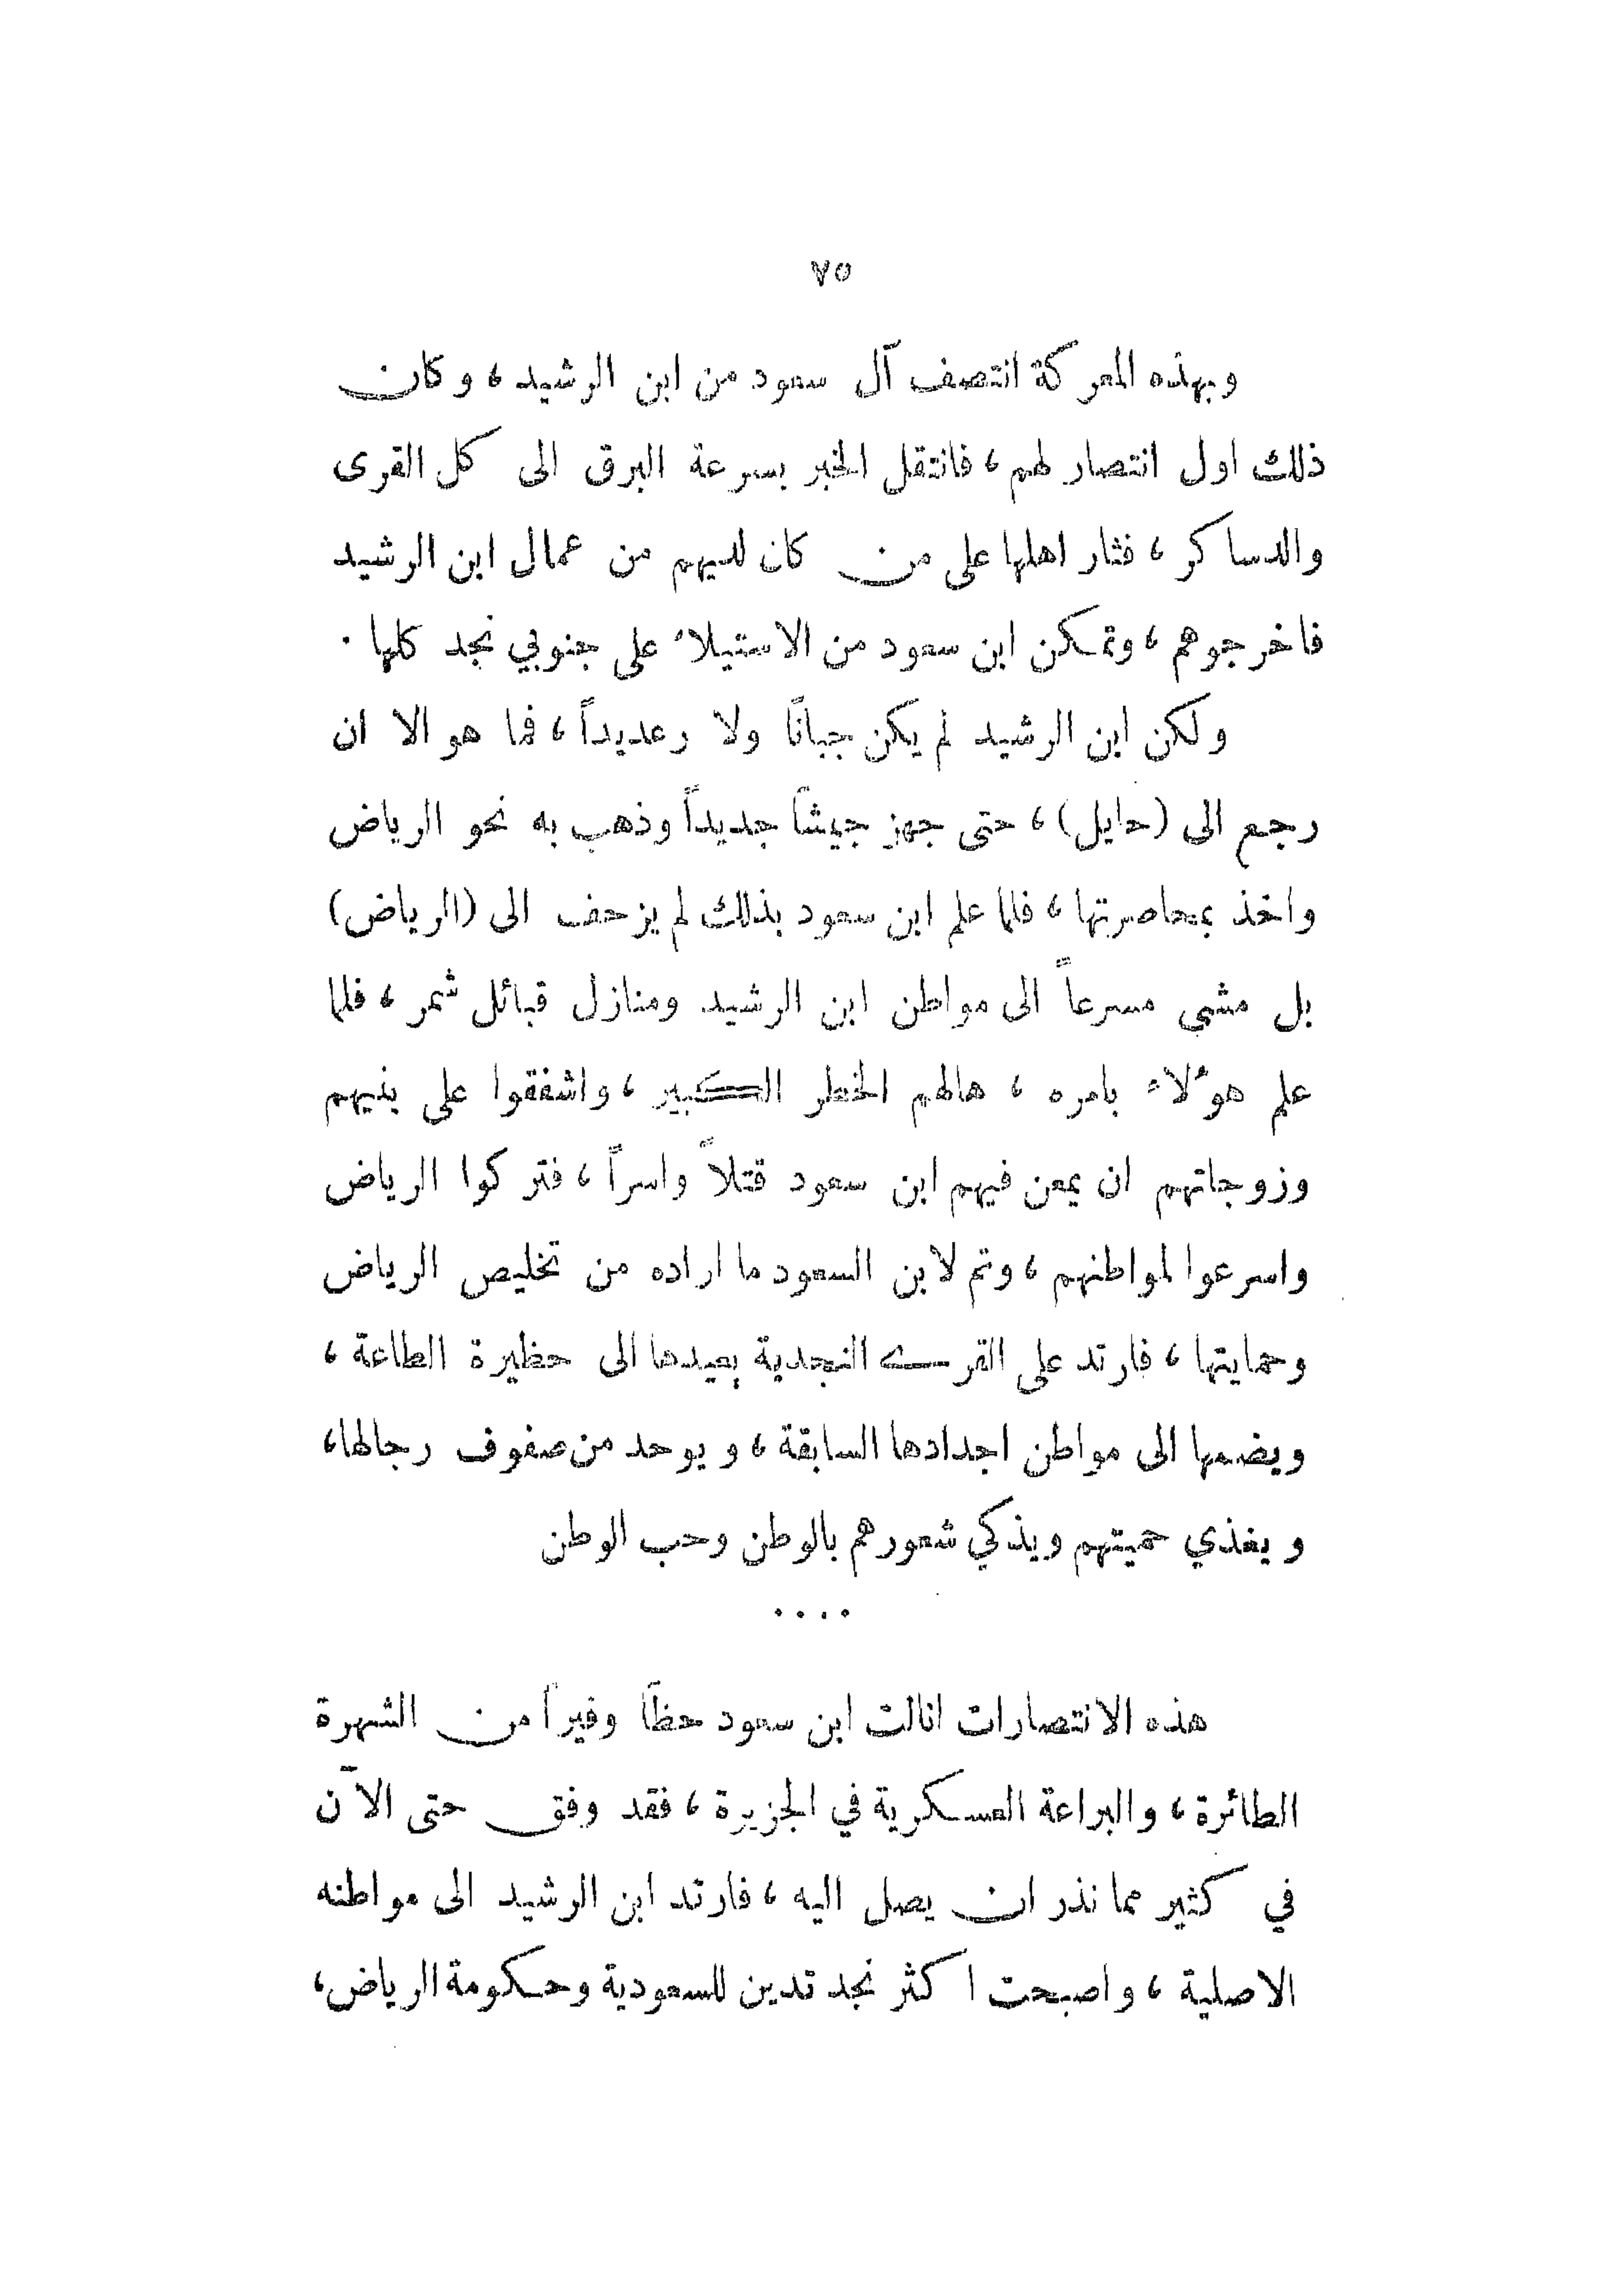 ٧٥
وبهذه المعركة انتصف آل سعود من ابن الرشيد ، وكان
ذلك اول انتصار لهم ، فانتقل الخبر بسرعة البرق الى كل القرى
والدساكر ، فثار اهلها على من كان لديهم من عمال ابن الرشيد
فاخرجوهم ، وتمكن ابن سعود من الاستيلاء على جنوبي نجد كلها .
ولكن ابن الرشيد لم يكن جباناً ولا رعديداً ، فما هو الا ان
رجع الى (حايل) ، حتى جهز جيشاً جديداً وذهب به نحو الرياض
واخذ بمحاصرتها ، فلما علم ابن سعود بذلك لم يزحف الى (الرياض)
بل مشى مسرعاً الى مواطن ابن الرشيد ومنازل قبائل شمر ، فلما
علم هؤلاء بامره ، هالهم الخطر الكبير ، واشفقوا على بنيهم
وزوجاتهم ان يمعن فيهم ابن سعود قتلاً واسراً ، فتركوا الرياض
واسرعوا لمواطنهم ، وتم لابن السعود ما اراده من تخليص الرياض
وحمايتها ، فارتد على القرى النجدية يعيدها الى حظيرة الطاعة ،
ويضمها الى مواطن اجدادها السابقة ، ويوحد من صفوف رجالها ،
ويغذي حميتهم ويذكي شعورهم بالوطن وحب الوطن
. . . .
هذه الانتصارات انالت ابن سعود حظاً وفيراً من الشهرة
الطائرة ، والبراعة العسكرية في الجزيرة ، فقد وفق حتى الآن
في كثير مما نذر ان يصل اليه ، فارتد ابن الرشيد الى مواطنه
الاصلية ، واصبحت اكثر نجد تدين للسعودية وحكومة الرياض ،